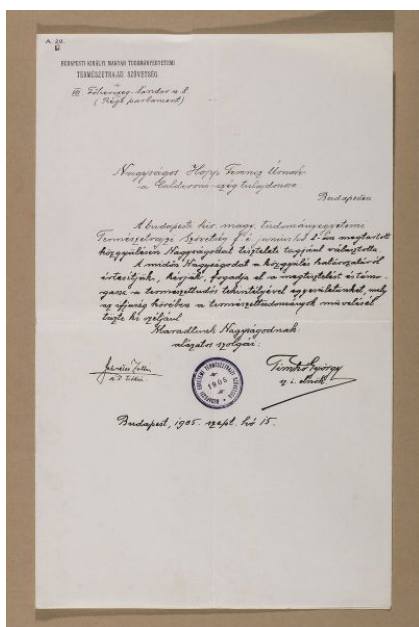 A. 20.
BUDAPESTI KIRÁLYI MAGYAR TUDOMÁNYEGYETEMI
TERMÉSZETRAJZI SZÖVETSÉG
VIII. Főherczeg Sándor u. 8
(Régi parlament)
Nagyságos Hopp Ferencz Úrnak
a Calderoni-czég tulajdonosa
Budapesten
A budapesti kir. magy. tudományegyetemi
Természetrajzi Szövetség f. é. június hó 2-án megtartott
közgyűlésén Nagyságodat tiszteleti tagjául választotta.
A midőn Nagyságodat a közgyűlés határozatáról
értesítjük, kérjük, fogadja el a megtiszteltetést és támo-
gassa a természettudós tekintélyével egyesületünket, mely
az ifjúság körében a természettudományok művelését
tűzte ki czéljául.
Maradtunk Nagyságodnak
alázatos szolgái:
Zoltán
1905
Timkó György
sz. i. elnök
Budapest, 1905. szept. hó 15.